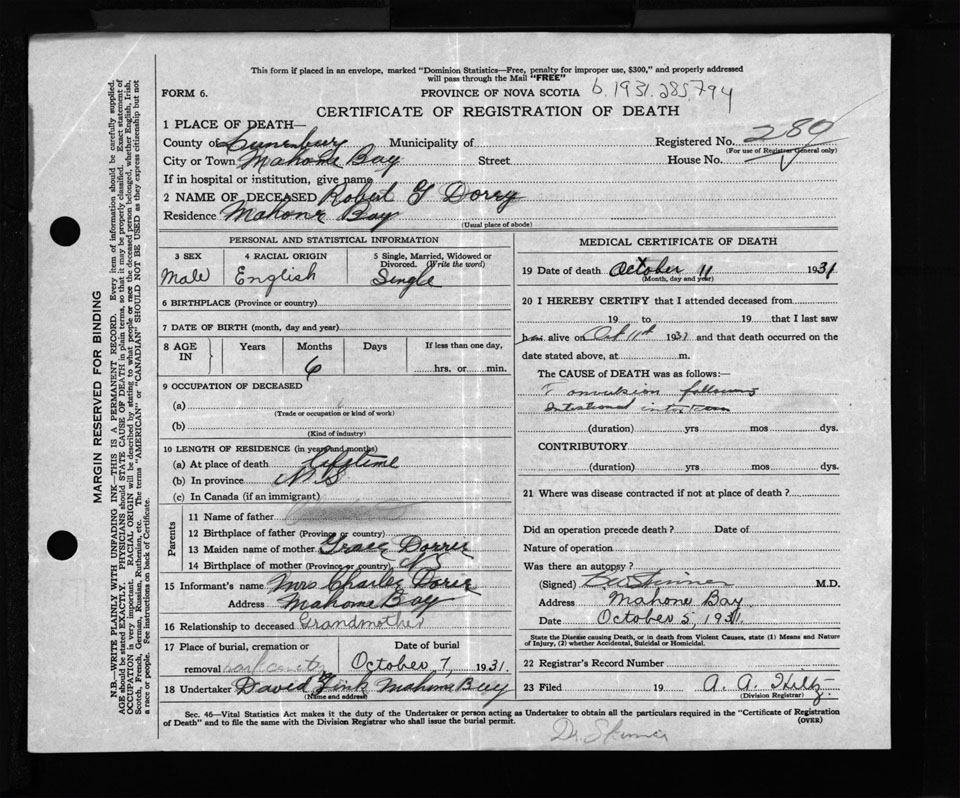 This form if placed in an envelope, marked "Dominion Statistics—Free, penalty for improper use, $300," and properly addressed
will pass through the Mail "FREE"
FORM 6.
PROVINCE OF NOVA SCOTIA b.1931.285794
CERTIFICATE OF REGISTRATION OF DEATH
1 PLACE OF DEATH—
County of Lunenburg Municipality of Registered No. 280
(For use of Registrar General only)
City or Town Mahone Bay Street House No.
If in hospital or institution, give name
2 NAME OF DECEASED Robert G Dorey
Residence Mahone Bay
(Usual place of abode)
PERSONAL AND STATISTICAL INFORMATION
3 SEX 4 RACIAL ORIGIN 5 Single, Married, Widowed or Divorced. (Write the word)
Male English Single
6 BIRTHPLACE (Province or country)
7 DATE OF BIRTH (month, day and year)
8 AGE IN Years Months Days If less than one day,
6 hrs. or min.
9 OCCUPATION OF DECEASED
(a)
(Trade or occupation or kind of work)
(b)
(Kind of industry)
10 LENGTH OF RESIDENCE (in years and months)
(a) At place of death Lifetime
(b) In province N.S
(c) In Canada (if an immigrant)
Parents
11 Name of father
12 Birthplace of father (Province or country)
13 Maiden name of mother Grace
14 Birthplace of mother (Province or country) N S
15 Informant's name Mrs Charles
Address Mahone Bay
16 Relationship to deceased Grandmother
17 Place of burial, cremation or removal Date of burial
October 7, 1931.
18 Undertaker David Zink Mahone Bay
(Name and address)
MEDICAL CERTIFICATE OF DEATH
19 Date of death October 11 1931
(Month, day and year)
20 I HEREBY CERTIFY that I attended deceased from
19 to 19 that I last saw
alive on Oct 1931 and that death occurred on the
date stated above, at m.
The CAUSE of DEATH was as follows:—
Convulsion following
Intestinal
(duration) yrs mos dys.
CONTRIBUTORY
(duration) yrs mos dys.
21 Where was disease contracted if not at place of death?
Did an operation precede death? Date of
Nature of operation
Was there an autopsy?
(Signed) Skinner M.D.
Address Mahone Bay
Date October 5, 1931.
State the Disease causing Death, or in death from Violent Causes, state (1) Means and Nature
of Injury, (2) whether Accidental, Suicidal or Homicidal.
22 Registrar's Record Number
23 Filed 19 A. A. Hiltz
(Division Registrar)
Sec. 46—Vital Statistics Act makes it the duty of the Undertaker or person acting as Undertaker to obtain all the particulars required in the "Certificate of Registration
of Death" and to file the same with the Division Registrar who shall issue the burial permit. (OVER)
Dr. Skinner
MARGIN RESERVED FOR BINDING
N.B.—WRITE PLAINLY WITH UNFADING INK—THIS IS A PERMANENT RECORD. Every item of information should be carefully supplied.
AGE should be stated EXACTLY. PHYSICIANS should STATE CAUSE OF DEATH in plain terms, so that it may be properly classified. Exact statement of
OCCUPATION is very important. RACIAL ORIGIN will be described by stating to what people or race the deceased person belonged, whether English, Irish,
Scotch, French, German, Russian, Ruthenian, etc. The terms "AMERICAN" or "CANADIAN" SHOULD NOT BE USED as they express citizenship but not
a race or people. See instructions on back of Certificate.